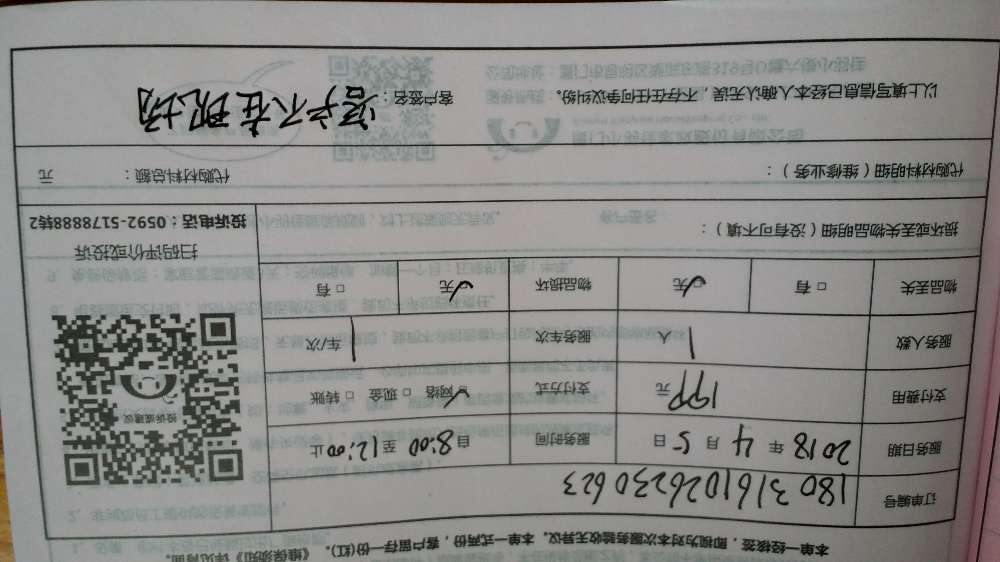 本单一经核签，即视为对本次服务验收无异议。本单一式两份，客户留存一份(红)。《维保须知》详见背面。
订单编号 1803161026230623
服务日期 2018 年 4 月 5 日 服务时间 自 8:00 至 12:00 止
支付费用 199 元 支付方式 ☑ 网络 □ 现金 □ 转账
服务人数 1 人 服务车次 1 车/次
物品丢失 □ 有 ☑ 无 物品损坏 ☑ 无 □ 有
投诉或建议
扫码评价或投诉
投诉电话：0592-5178888转2
损坏或丢失物品明细（没有可不填）：
代购材料明细（维修业务）： 代购材料总额： 元
以上填写信息已经本人确认无误，不存在任何争议纠纷。 客户签名：客户不在现场